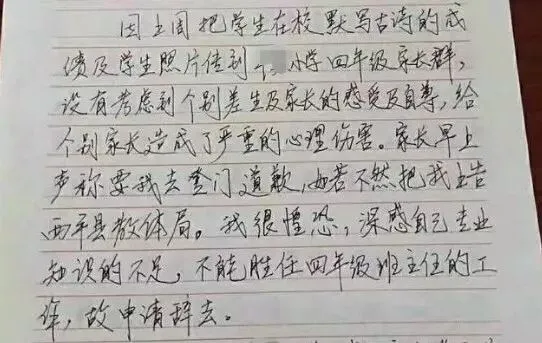 因上周把学生在校默写古诗的成
绩及学生照片传到小学四年级家长群,
没有考虑到个别差生及家长的感受及自尊,给
个别家长造成了严重的心理伤害。家长早上
声称要我去登门道歉,如若不然把我上告
西平县教体局。我很惶恐,深感自己专业
知识的不足,不能胜任四年级班主任的工
作,故申请辞去。